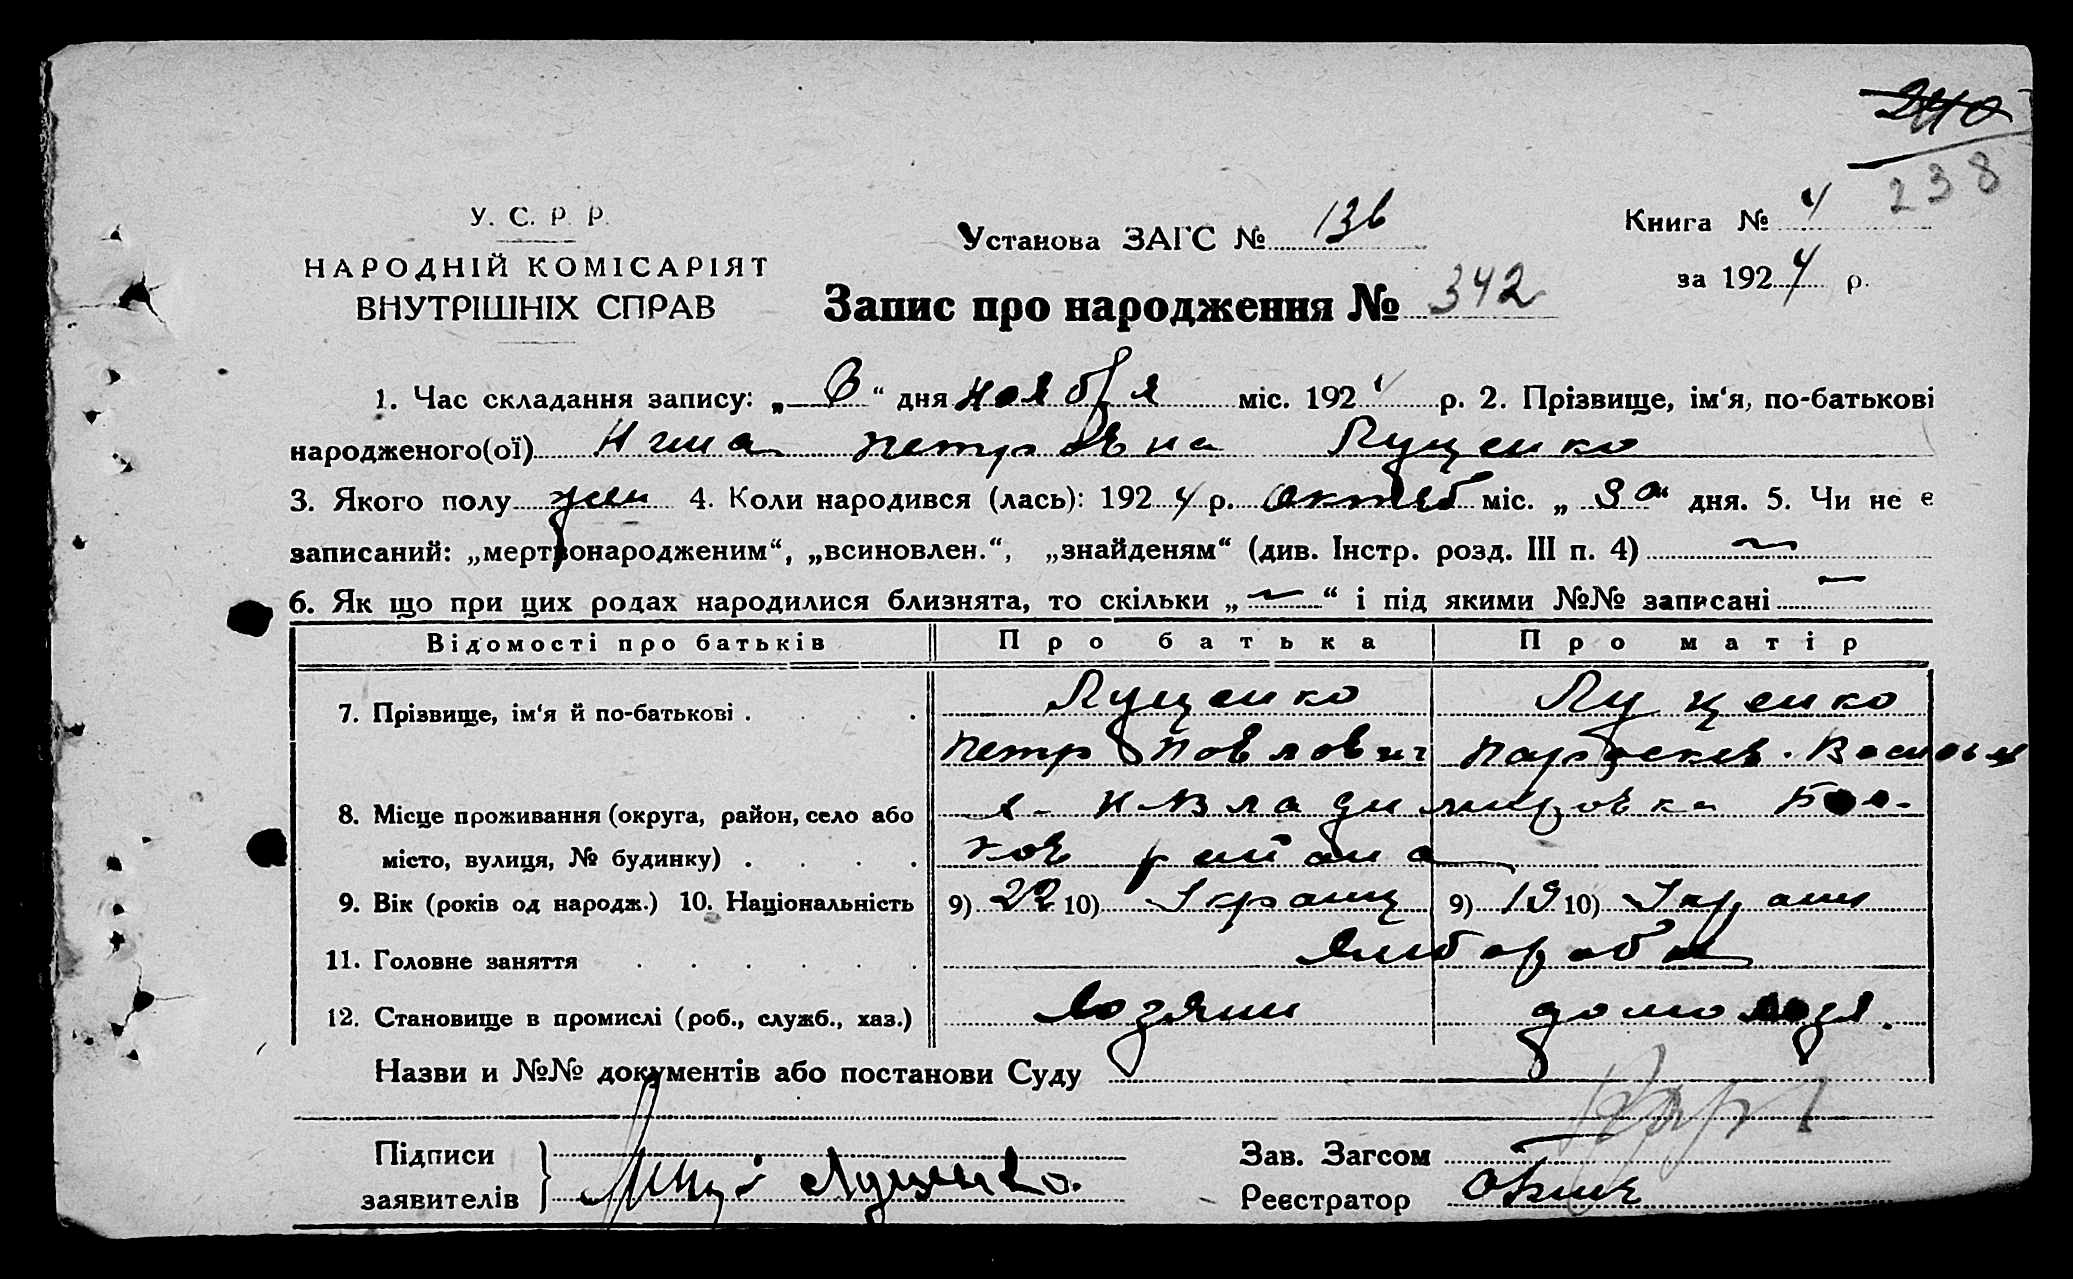 240
238
У. С. Р. Р.
Установа ЗАГС № 136
Книга № 4
НАРОДНІЙ КОМІСАРІЯТ
ВНУТРІШНІХ СПРАВ
за 1924 р.
Запис про народження № 342
1. Час складання запису: „ 6 “ дня ноября міс. 1924 р. 2. Прізвище, ім‘я, по-батькові
народженого(ої) Нина Петровна Луценко
3. Якого полу жен 4. Коли народився (лась): 1924 р. октяб міс. „ 30 “ дня. 5. Чи не є
записаний: „мертвонародженим“, „всиновлен.“, „знайденям“ (див. Інстр. розд. III п. 4) —
6. Як що при цих родах народилися близнята, то скільки „ — “ і під якими №№ записані —
Відомості про батьків Про батька Про матір
7. Прізвище, ім‘я й по-батькові . . . . Луценко Луценко
Петр Павлович Параскев. Васильев
8. Місце проживання (округа, район, село або Н-Владимировка
місто, вулиця, № будинку) . . . . ков района
9. Вік (років од народж.) 10. Національність 9) 22 10) Украинц 9) 19 10) Украин
11. Головне заняття . . . . . . Хлібороби
12. Становище в промислі (роб., служб., хаз.) хозяин домохозя.
Назви и №№ документів або постанови Суду
Підписи
заявителів Луценко.
Зав. Загсом
Реєстратор